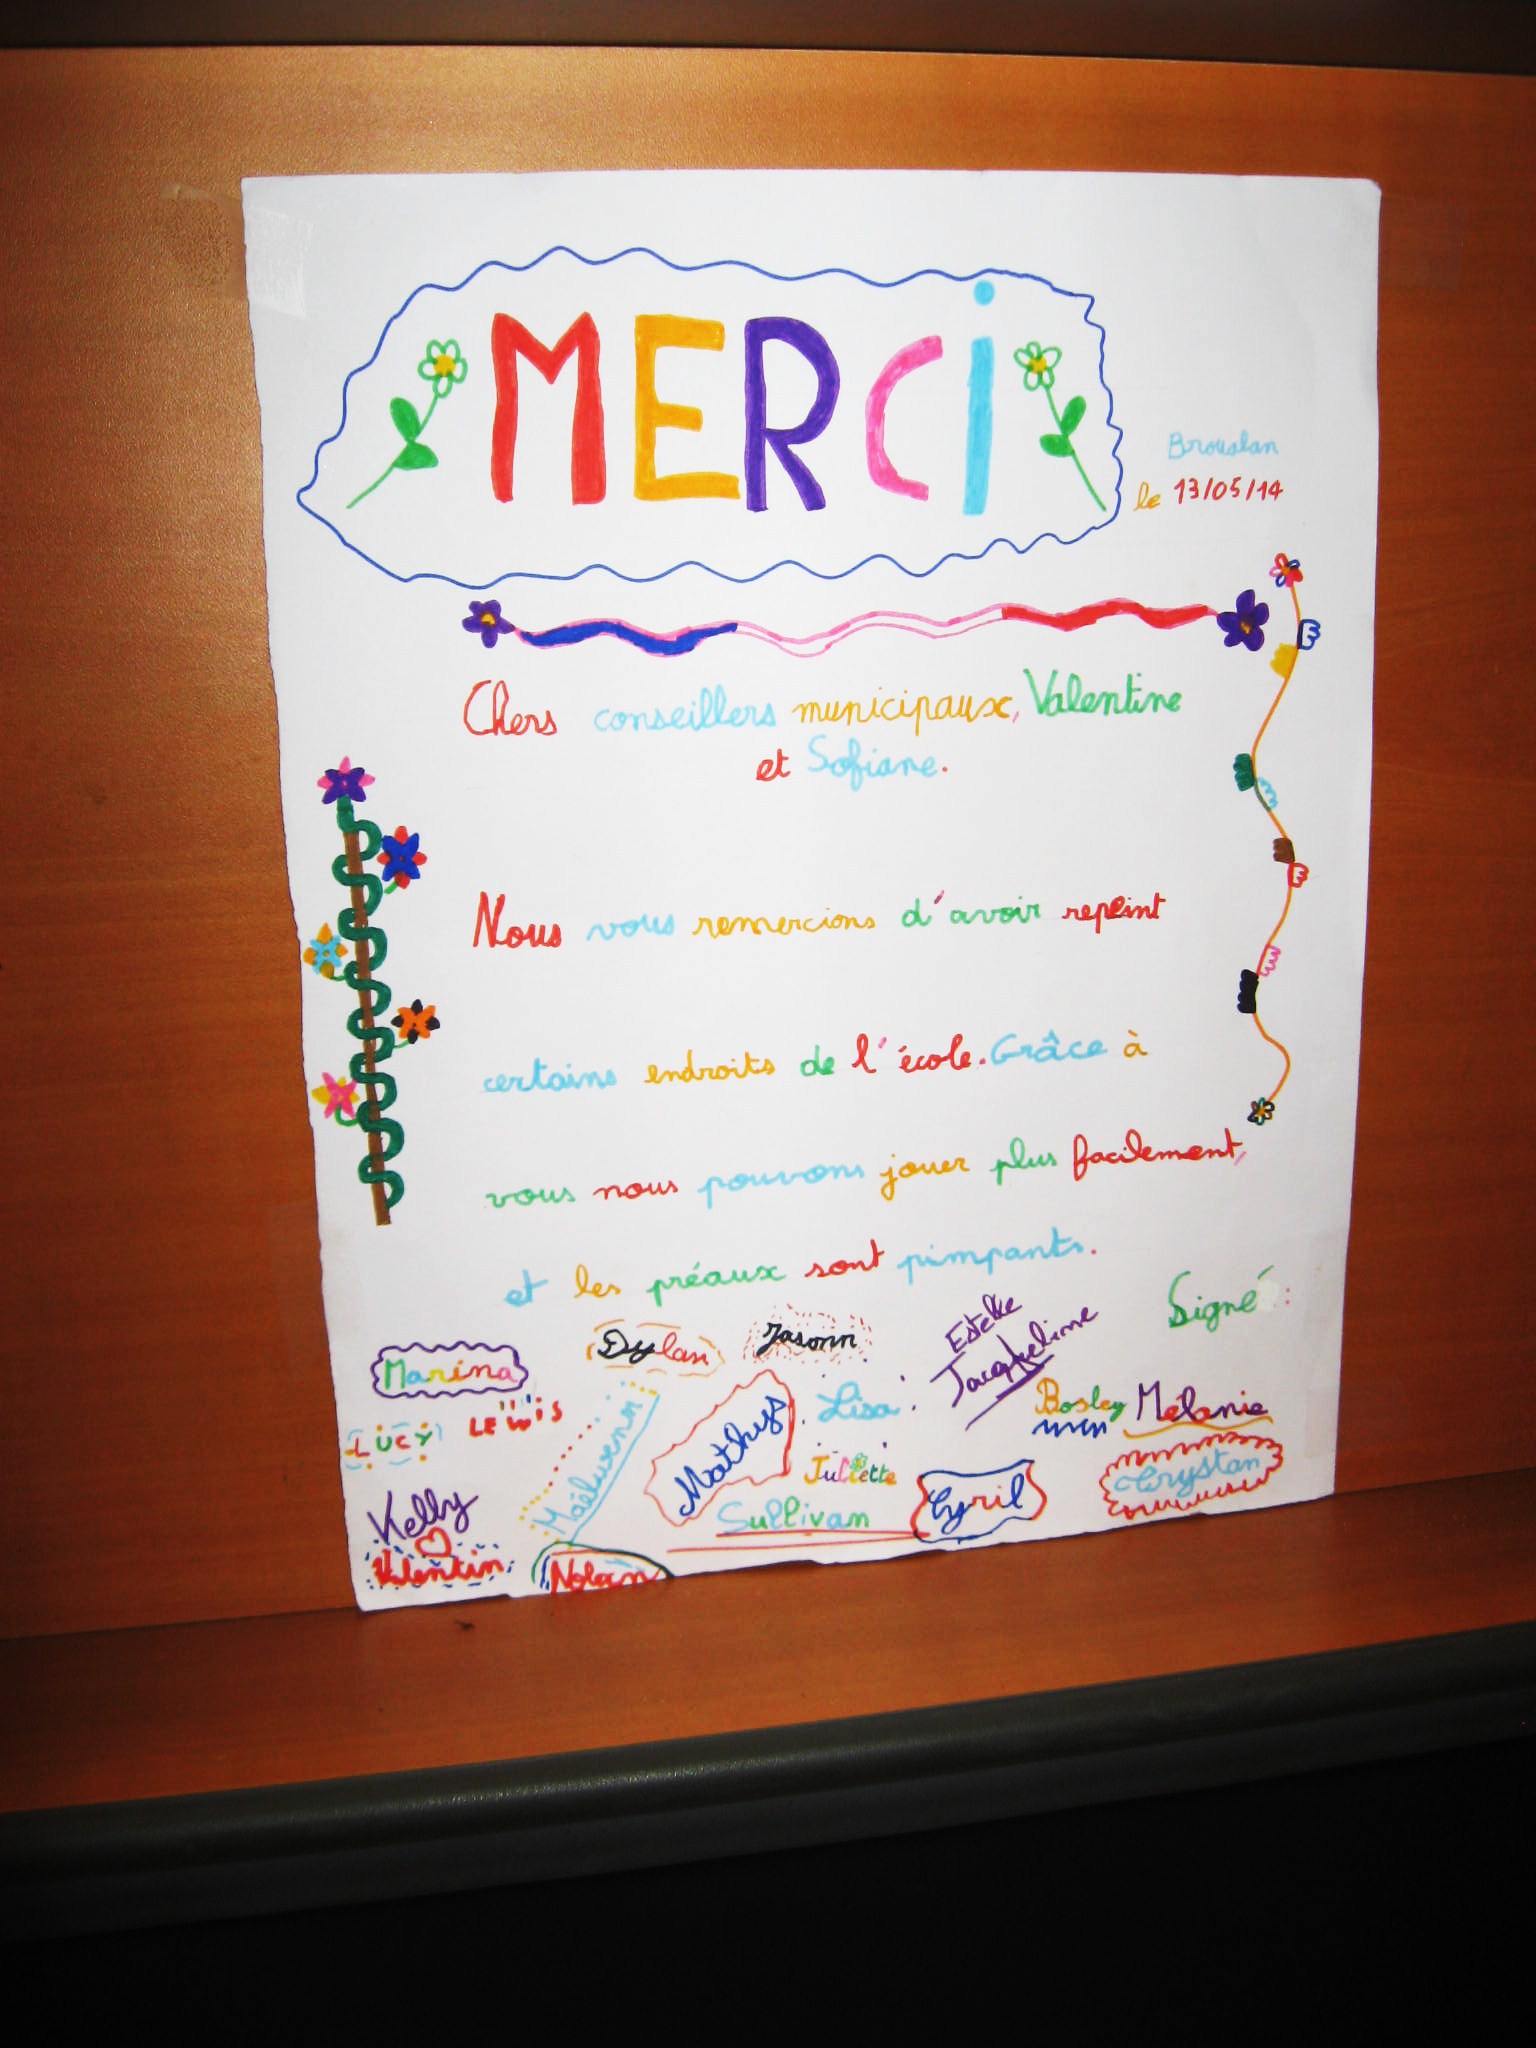 MERCi
Broualan
le 13/05/14
Chers conseillers municipaux, Valentine
et Sofiane.
Nous vous remercions d'avoir repeint
certains endroits de l'école. Grâce à
vous nous pouvons jouer plus facilement,
et les préaux sont pimpants.
Signé :
Estelle
Jacqueline
Marina
Dylan
Jasonn
LUCY
LEWiS
Maëlwenn
Mathys
Lisa
Bosley
Mélanie
Juliette
Kelly
Sullivan
Cyril
Trystan
Valentin
Nolan